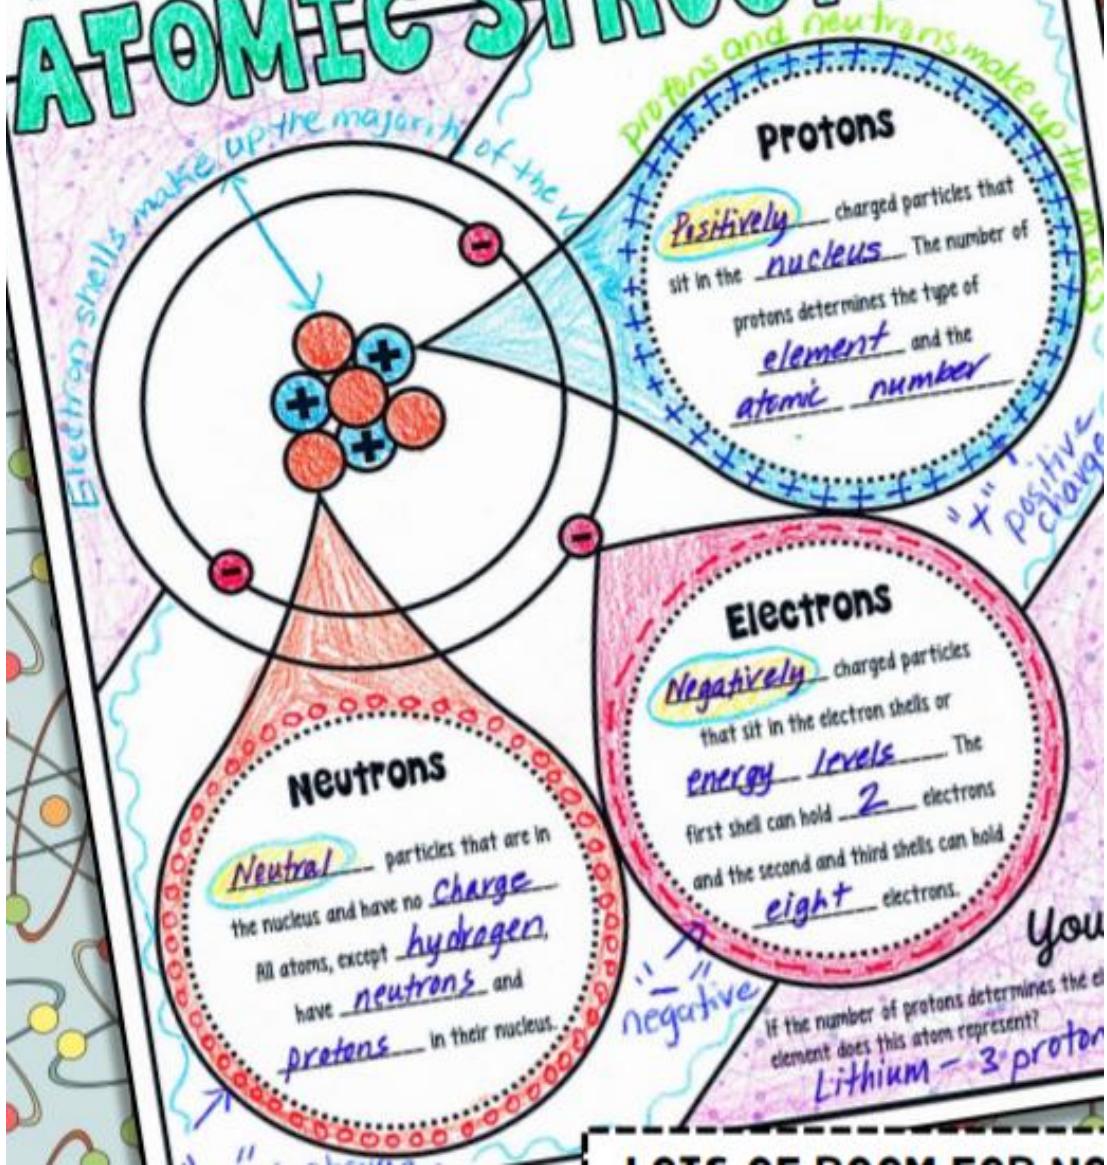 ATOMIC
Electron shells make up the majority of the
protons and neutrons make up the mass
Protons
Positively charged particles that
sit in the nucleus. The number of
protons determines the type of
element and the
atomic number
"+" positive
charge
Electrons
Negatively charged particles
that sit in the electron shells or
energy levels. The
first shell can hold 2 electrons
and the second and third shells can hold
eight electrons.
"-"
negative
Neutrons
Neutral particles that are in
the nucleus and have no Charge
All atoms, except hydrogen,
have neutrons and
protons in their nucleus.
You
If the number of protons determines the
element does this atom represent?
Lithium - 3 proton
LOTS OF ROOM FOR